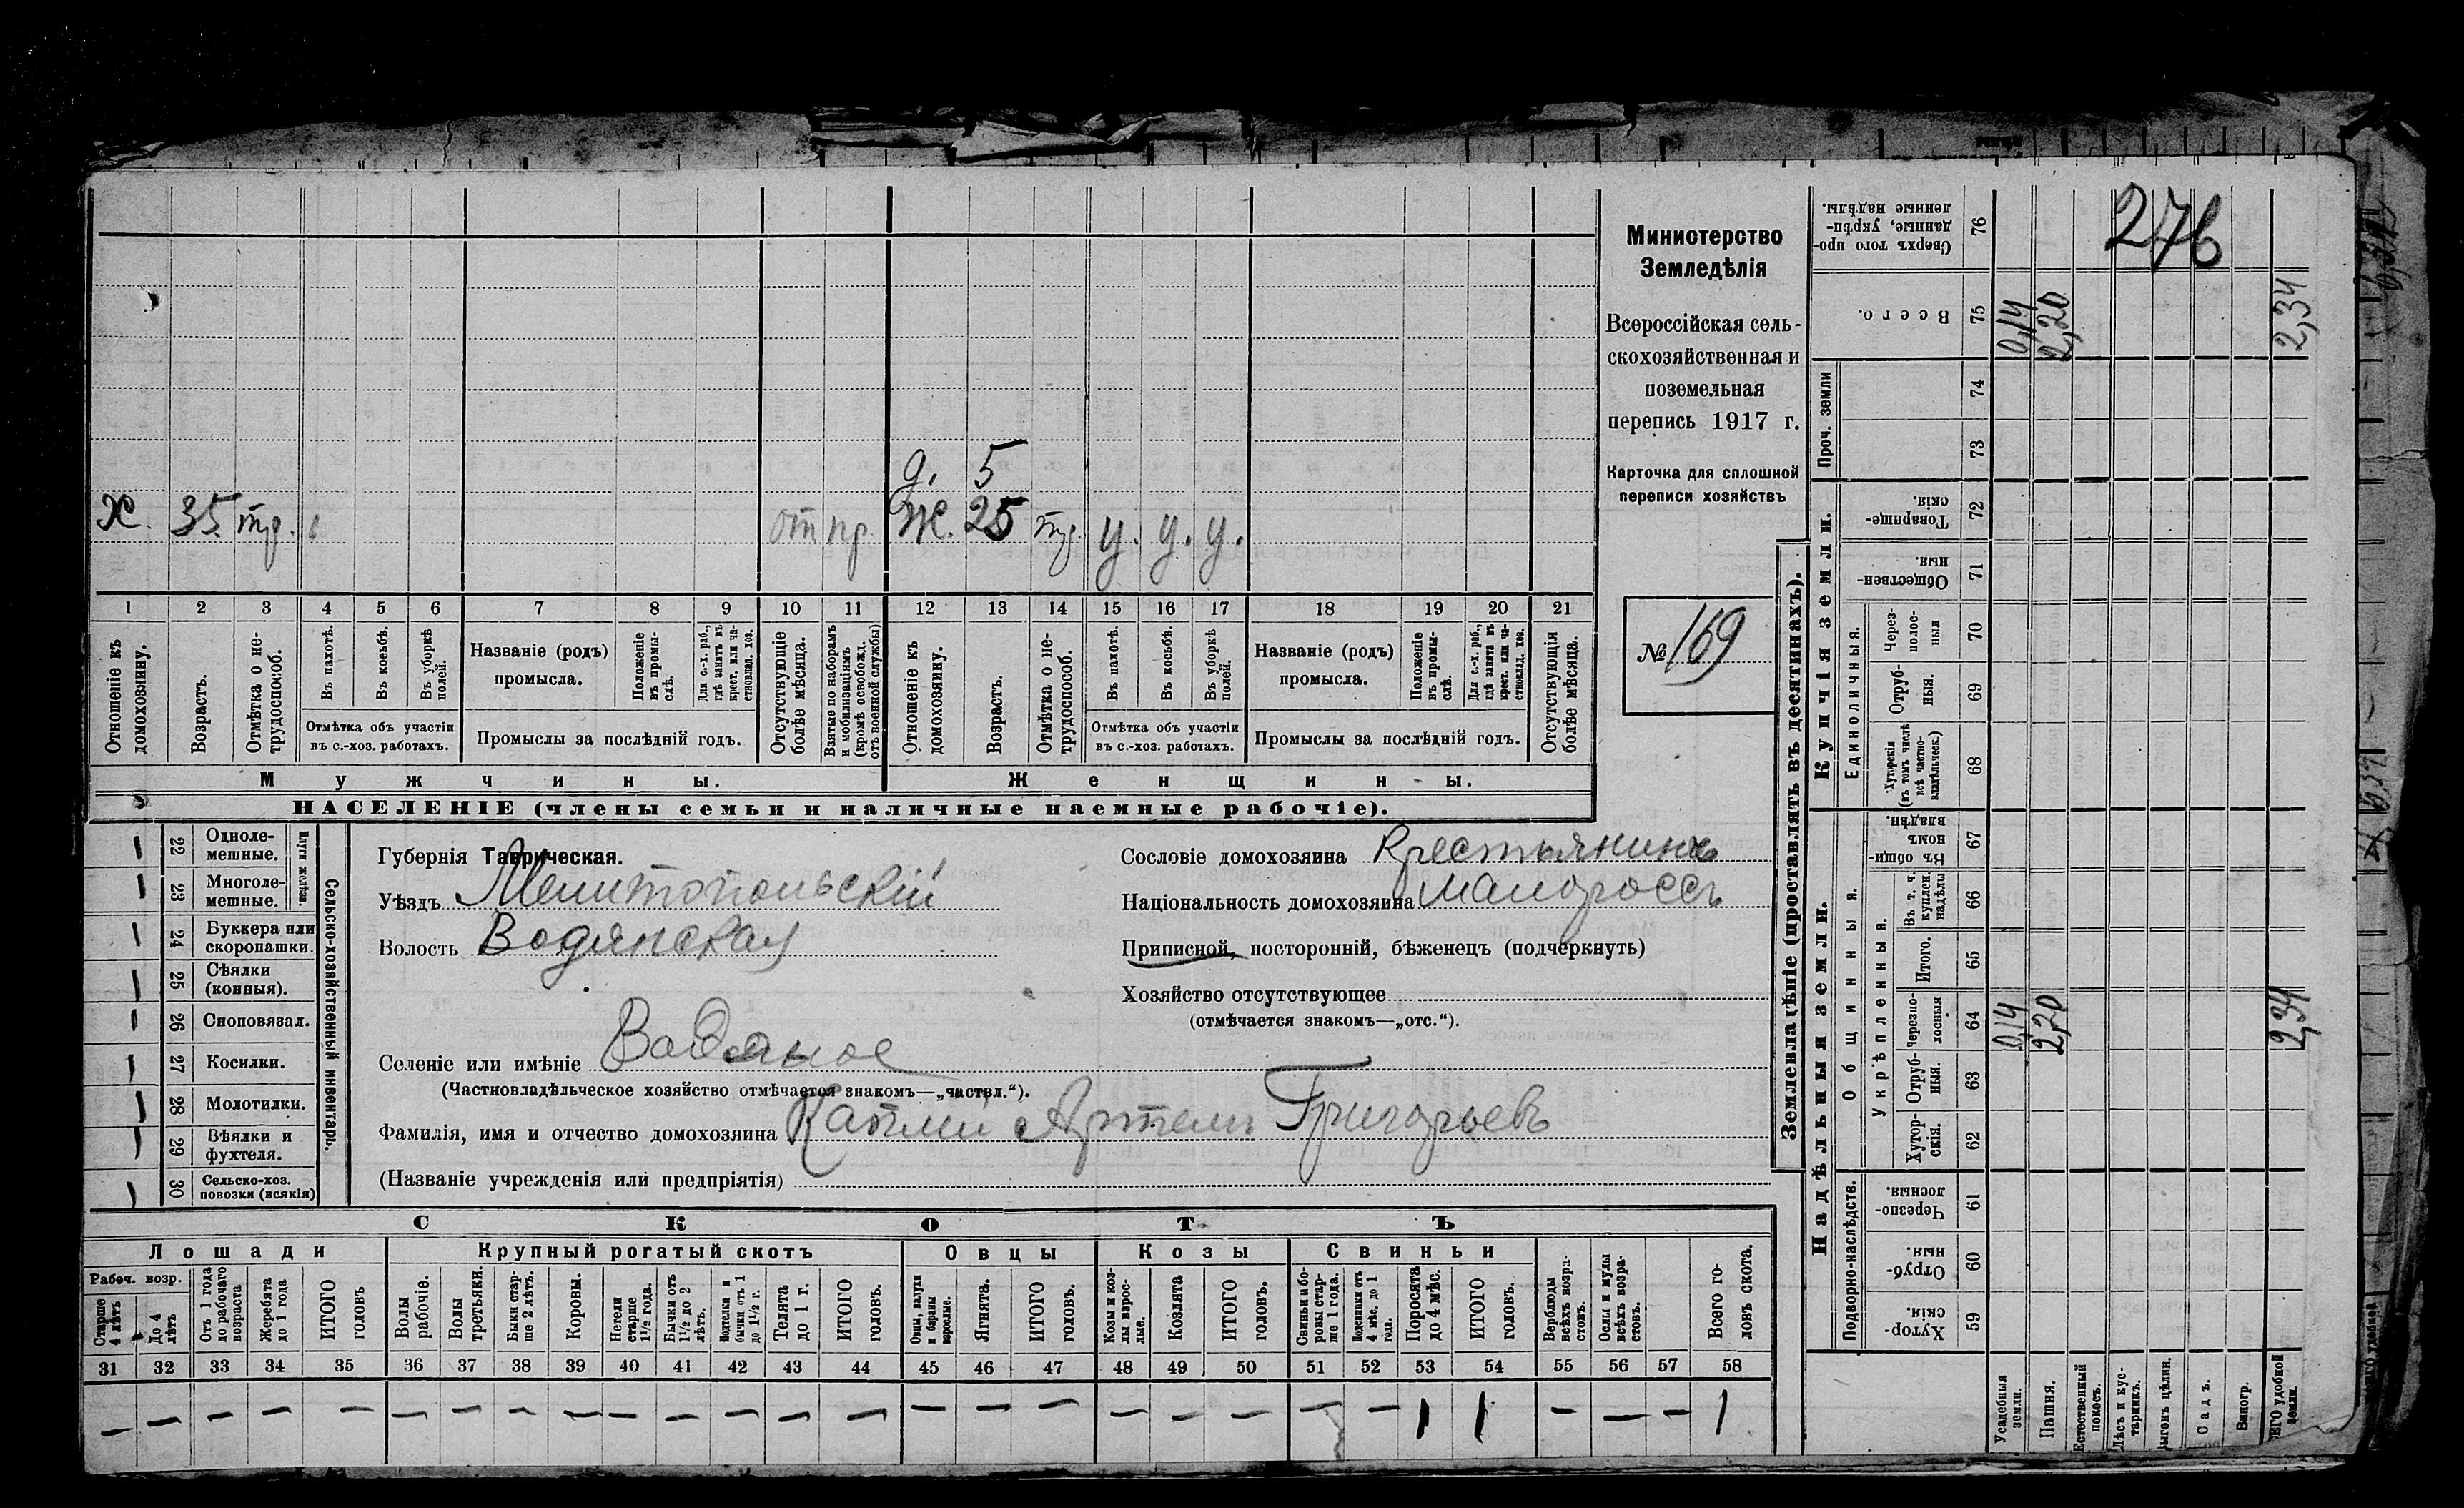 276
Министерство
Земледѣлія
Всероссійская сель-
скохозяйственная и
поземельная
перепись 1917 г.
Карточка для сплошной
переписи хозяйствъ
№ 169
д. 5
х. 35 тр.
от пр. ж. 25 тр. у. у. у.
1 2 3 4 5 6 7 8 9 10 11 12 13 14 15 16 17 18 19 20 21
Отношеніе къ домохозяину.
Возрастъ.
Отмѣтка о не-трудоспособ.
Въ пахотѣ.
Въ косьбѣ.
Въ уборкѣ полей.
Отмѣтка объ участіи
въ с.-хоз. работахъ.
Названіе (родъ)
промысла.
Положеніе въ промы-слѣ.
Для с.-х. раб., гдѣ занятъ въ крест. или ча-стновлад. хоз.
Промыслы за послѣдній годъ.
Отсутствующіе болѣе мѣсяца.
Взятые по наборамъ и мобилизаціямъ (кромѣ освобожд. отъ военной службы)
Отношеніе къ домохозяину.
Возрастъ.
Отмѣтка о не-трудоспособ.
Въ пахотѣ.
Въ косьбѣ.
Въ уборкѣ полей.
Отмѣтка объ участіи
въ с.-хоз. работахъ.
Названіе (родъ)
промысла.
Положеніе въ промы-слѣ.
Для с.-х. раб., гдѣ занята въ крест. или ча-стновлад. хоз.
Промыслы за послѣдній годъ.
Отсутствующія болѣе мѣсяца.
Мужчины.
Женщины.
НАСЕЛЕНІЕ (члены семьи и наличные наемные рабочіе).
22 Одноле-
мешные.
23 Многоле-
мешные.
Плуги желѣзн.
24 Буккера или
скоропашки.
25 Сѣялки
(конныя).
26 Сноповязал.
27 Косилки.
28 Молотилки.
29 Вѣялки и
фухтеля.
30 Сельско-хоз.
повозки (всякія)
Сельско-хозяйственный инвентарь.
Губернія Таврическая.
Уѣздъ Мелитопольскій
Волость Водянская
Селеніе или имѣніе Водяное
(Частновладѣльческое хозяйство отмѣчается знакомъ—„частвл.“).
Фамилія, имя и отчество домохозяина Артемъ Григорьевъ
(Названіе учрежденія или предпріятія)
Сословіе домохозяина Крестьянинъ
Національность домохозяина малороссъ
Приписной, посторонній, бѣженецъ (подчеркнуть)
Хозяйство отсутствующее
(отмѣчается знакомъ—„отс.“).
СКОТЪ
Лошади
Крупный рогатый скотъ
Овцы
Козы
Свиньи
Рабоч. возр.
Старше 4 лѣтъ
До 4 лѣтъ
Отъ 1 года до рабочаго возраста
Жеребята до 1 года
ИТОГО головъ
Волы рабочіе.
Волы третьяки.
Быки стар-ше 2 лѣтъ.
Коровы.
Нетели старше 1½ года.
Бычки отъ 1½ до 2 лѣтъ.
Нетелки и бычки отъ 1 до 1½ г.
Телята до 1 г.
ИТОГО головъ.
Овцы, валухи и бараны взрослые.
Ягнята.
ИТОГО головъ.
Козы и коз-лы взрос-лые.
Козлята
ИТОГО головъ.
Свиньи и бо-ровы стар-ше 1 года.
Подсвинки отъ 4 мѣс. до 1 года.
Поросята до 4 мѣс.
ИТОГО головъ.
Верблюды всѣхъ возра-стовъ.
Ослы и мулы всѣхъ возра-стовъ.
Всего го-ловъ скота.
31 32 33 34 35 36 37 38 39 40 41 42 43 44 45 46 47 48 49 50 51 52 53 54 55 56 57 58
— — — — — — — — — — — — — — — — — — — — — — 1 1 — — — 1
Землевладѣніе (проставлять въ десятинахъ).
Сверхъ того про-данные, укрѣп-ленные надѣлы. 76
Всего. 75 0,14 2,20 2,34
Проч. земли
74
73
Купчія земли.
Товарище-скія. 72
Обществен-ныя 71
Единоличныя.
Через-полос-ныя 70
Отруб-ныя. 69
Хуторскія (въ томъ числѣ всѣ частно-владѣльческ.) 68
Надѣльныя земли.
Общинныя.
Въ общин-номъ владѣн. 67
Укрѣпленныя.
Въ т. ч. куплен. надѣлы 66
Итого. 65
Черезпо-лосныя 64 0,14 2,20 2,34
Отруб-ныя. 63
Хутор-скія. 62
Подворно-наслѣдств.
Черезпо-лосныя. 61
Отруб-ныя. 60
Хутор-скія. 59
Усадебныя земли.
Пашня.
Естественный покосъ.
Лѣсъ и кус-тарникъ.
Выгонъ цѣлин.
Садъ.
Виногр.
ВСЕГО удобной земли.